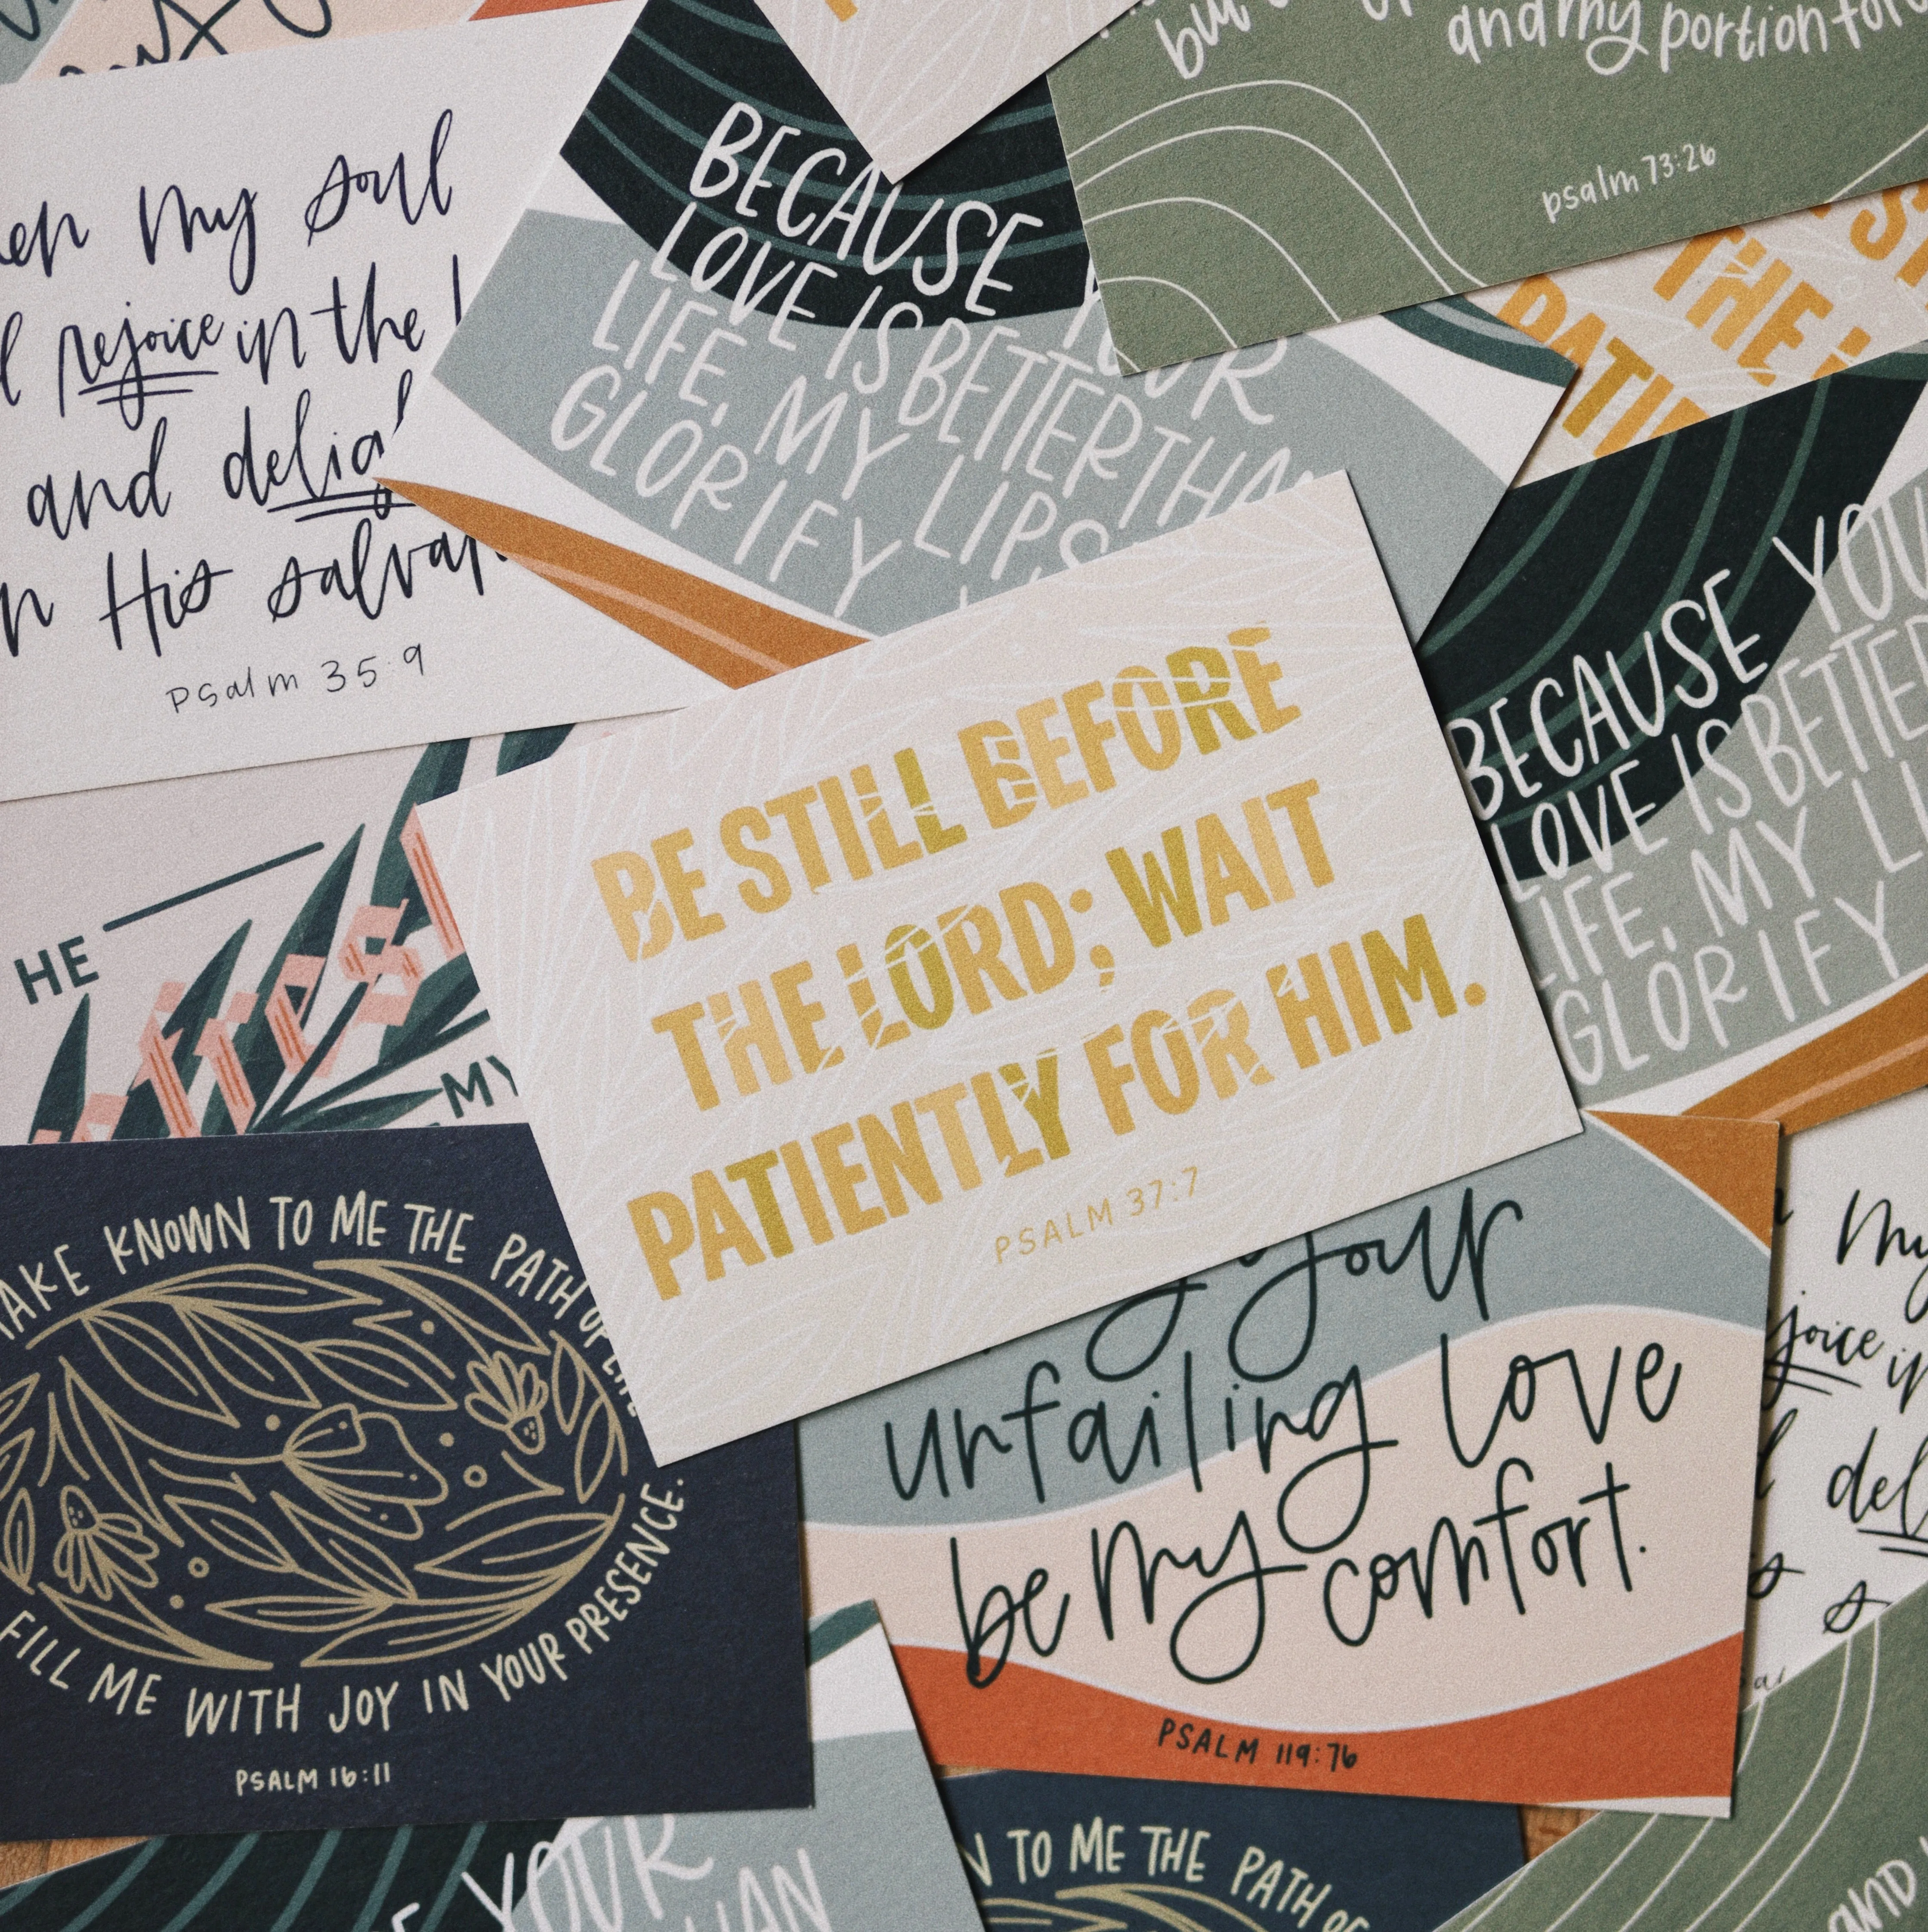 and my portion for
psalm 73:26
my soul
rejoice in the
and
His
Psalm 35:9
BECAUSE
LOVE IS BETTER
LIFE, MY LIPS
GLORIFY
THE
BE STILL BEFORE
THE LORD; WAIT
PATIENTLY FOR HIM.
PSALM 37:7
BECAUSE YOU
LOVE IS BETTER
LIFE, MY LI
GLORIFY
HE
MY
KNOWN TO ME THE PATH OF
FILL ME WITH JOY IN YOUR PRESENCE.
PSALM 16:11
your
unfailing love
be my comfort.
PSALM 119:76
My
in
del
YOUR
TO ME THE PATH OF
AND